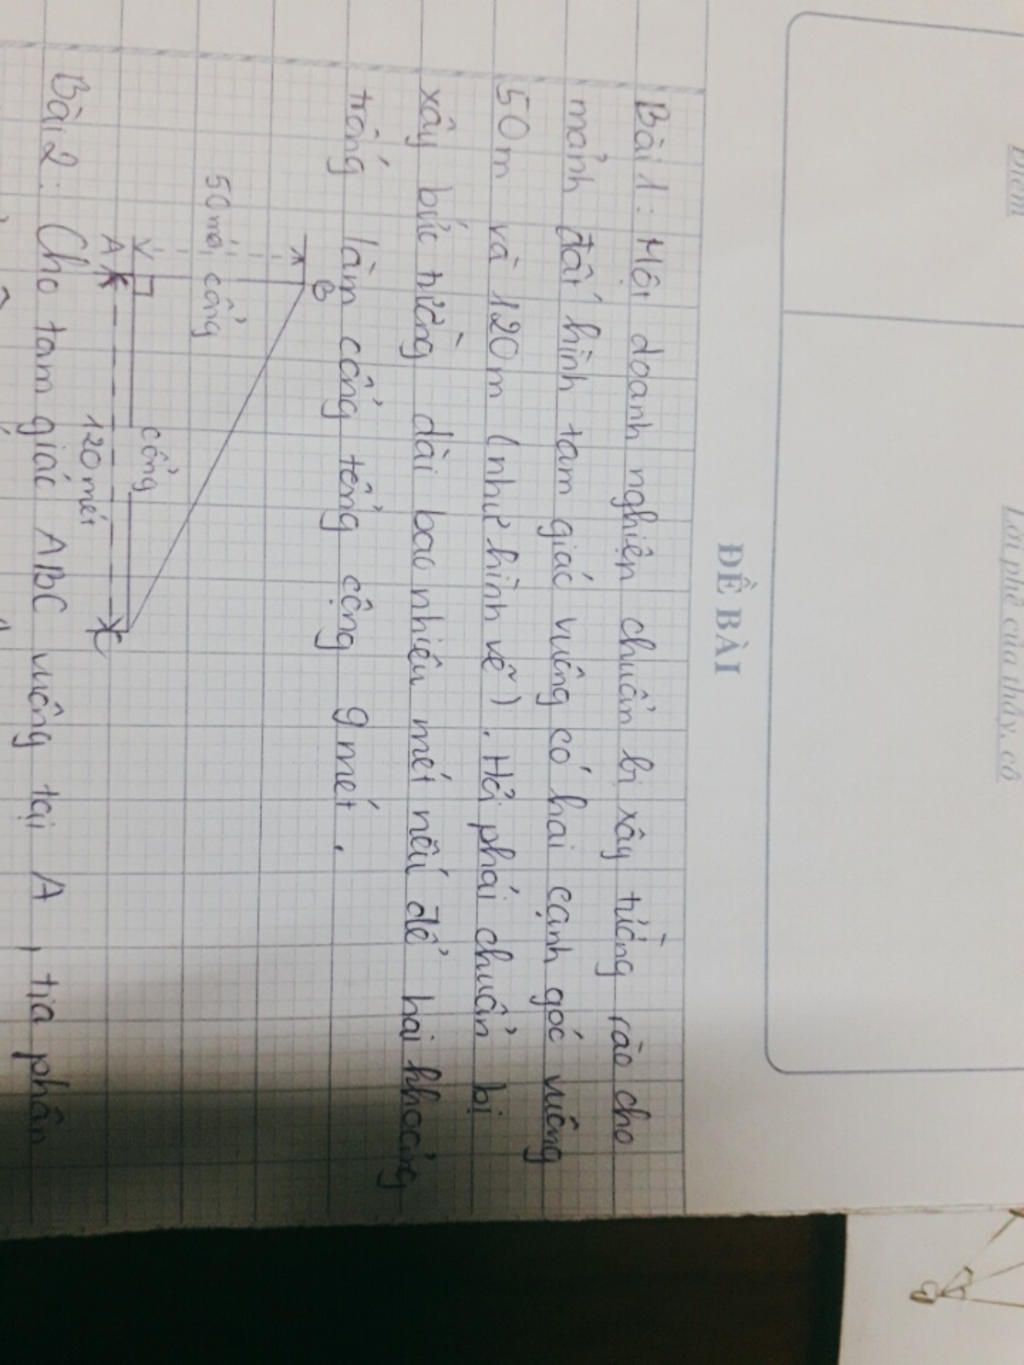 Điểm
Lời phê của thầy, cô
ĐỀ BÀI
Bài 1: Một doanh nghiệp chuẩn bị xây tường rào cho
mảnh đất hình tam giác vuông có hai cạnh góc vuông
50m và 120m (như hình vẽ). Hỏi phải chuẩn bị
xây bức tường dài bao nhiêu mét nếu để hai khoảng
trống làm cổng tổng cộng 9 mét.
B
50 mét
cổng
cổng
A
120 mét
C
Bài 2: Cho tam giác ABC vuông tại A, tia phân
B